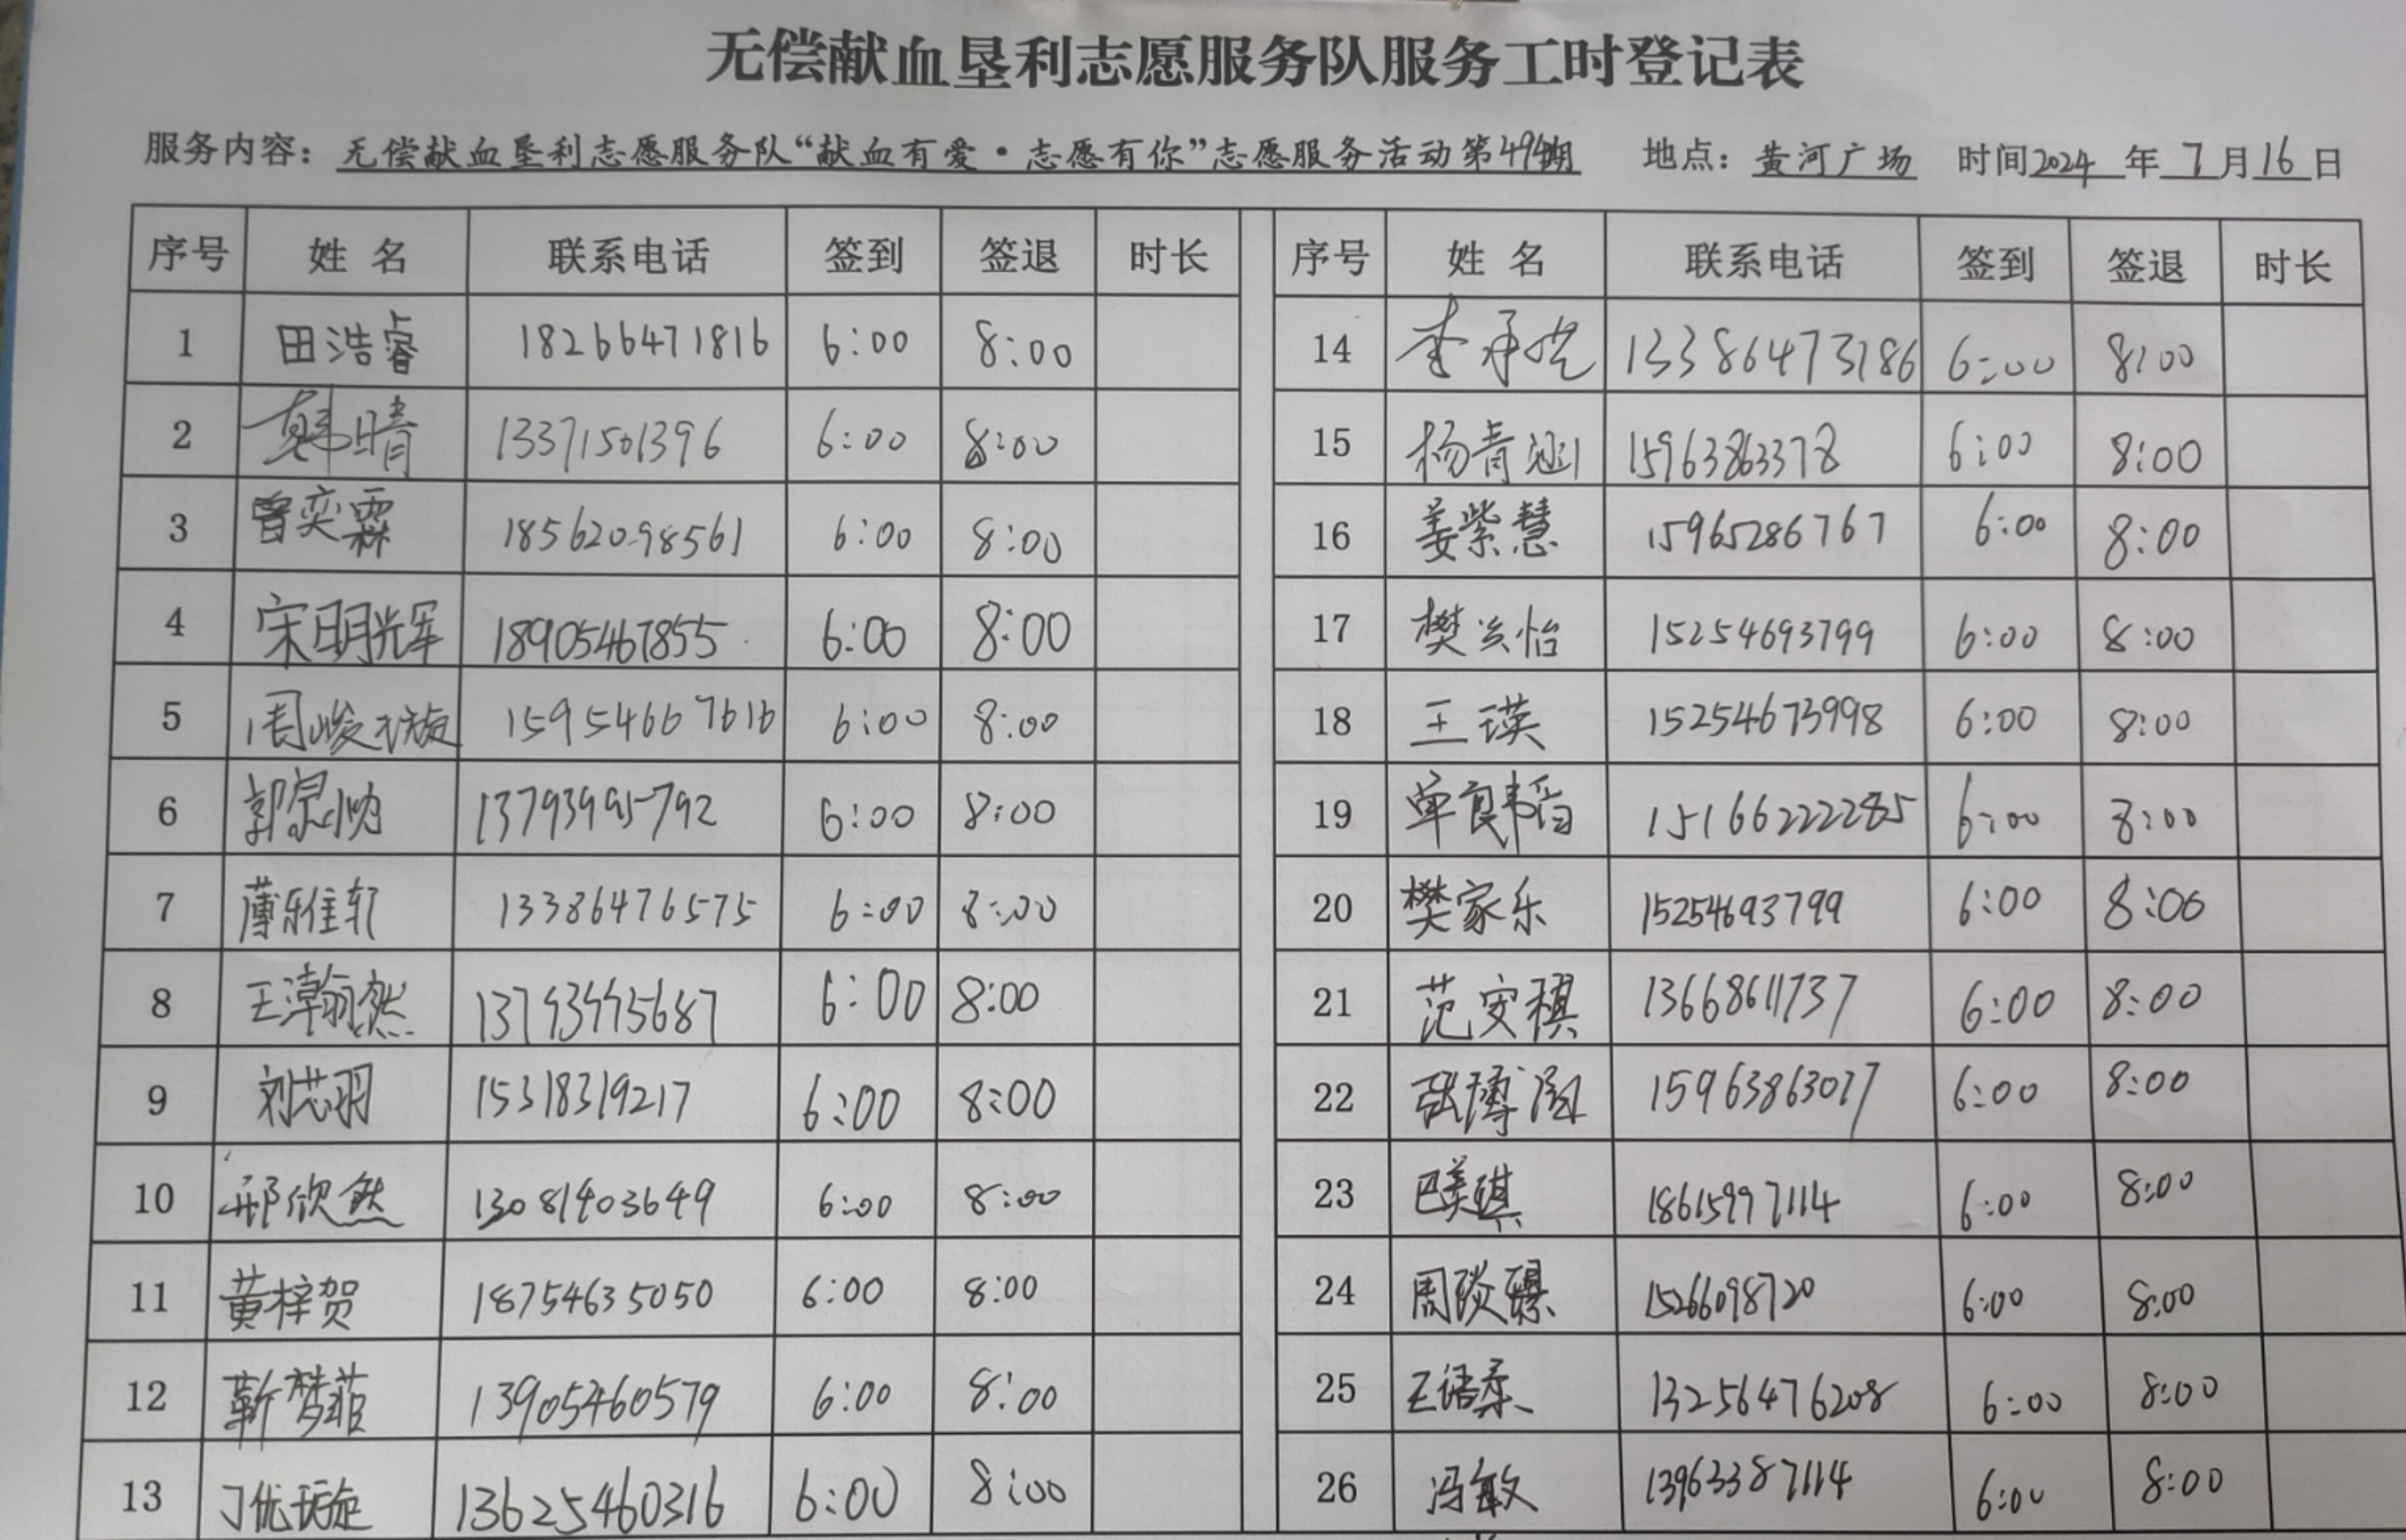 无偿献血垦利志愿服务队服务工时登记表
服务内容：无偿献血垦利志愿服务队“献血有爱·志愿有你”志愿服务活动第494期 地点：黄河广场 时间2024年7月16日
序号 姓名 联系电话 签到 签退 时长 序号 姓名 联系电话 签到 签退 时长
1 田浩睿 18266471816 6:00 8:00 14 李承 13386473186 6:00 8:00
2 韩晴 13371501396 6:00 8:00 15 杨青涵 15963863378 6:00 8:00
3 曾奕霖 18562098561 6:00 8:00 16 姜紫慧 15965286767 6:00 8:00
4 宋明辉 18905467855 6:00 8:00 17 樊怡 15254693799 6:00 8:00
5 周峻旋 15954667616 6:00 8:00 18 王瑛 15254673998 6:00 8:00
6 郭 13793995792 6:00 8:00 19 单良韬 15166222285 6:00 8:00
7 薄雅轩 13386476575 6:00 8:00 20 樊家乐 15254693799 6:00 8:00
8 王瀚然 13793995687 6:00 8:00 21 范安祺 13668611737 6:00 8:00
9 刘芯羽 15318319217 6:00 8:00 22 张博涵 15963863077 6:00 8:00
10 邢欣然 13081403649 6:00 8:00 23 巴美琪 18615997114 6:00 8:00
11 黄梓贺 18754635050 6:00 8:00 24 周琰 15266098720 6:00 8:00
12 靳梦菲 13905460579 6:00 8:00 25 王语柔 13256476208 6:00 8:00
13 丁优璇 13625460316 6:00 8:00 26 冯敏 13963387114 6:00 8:00